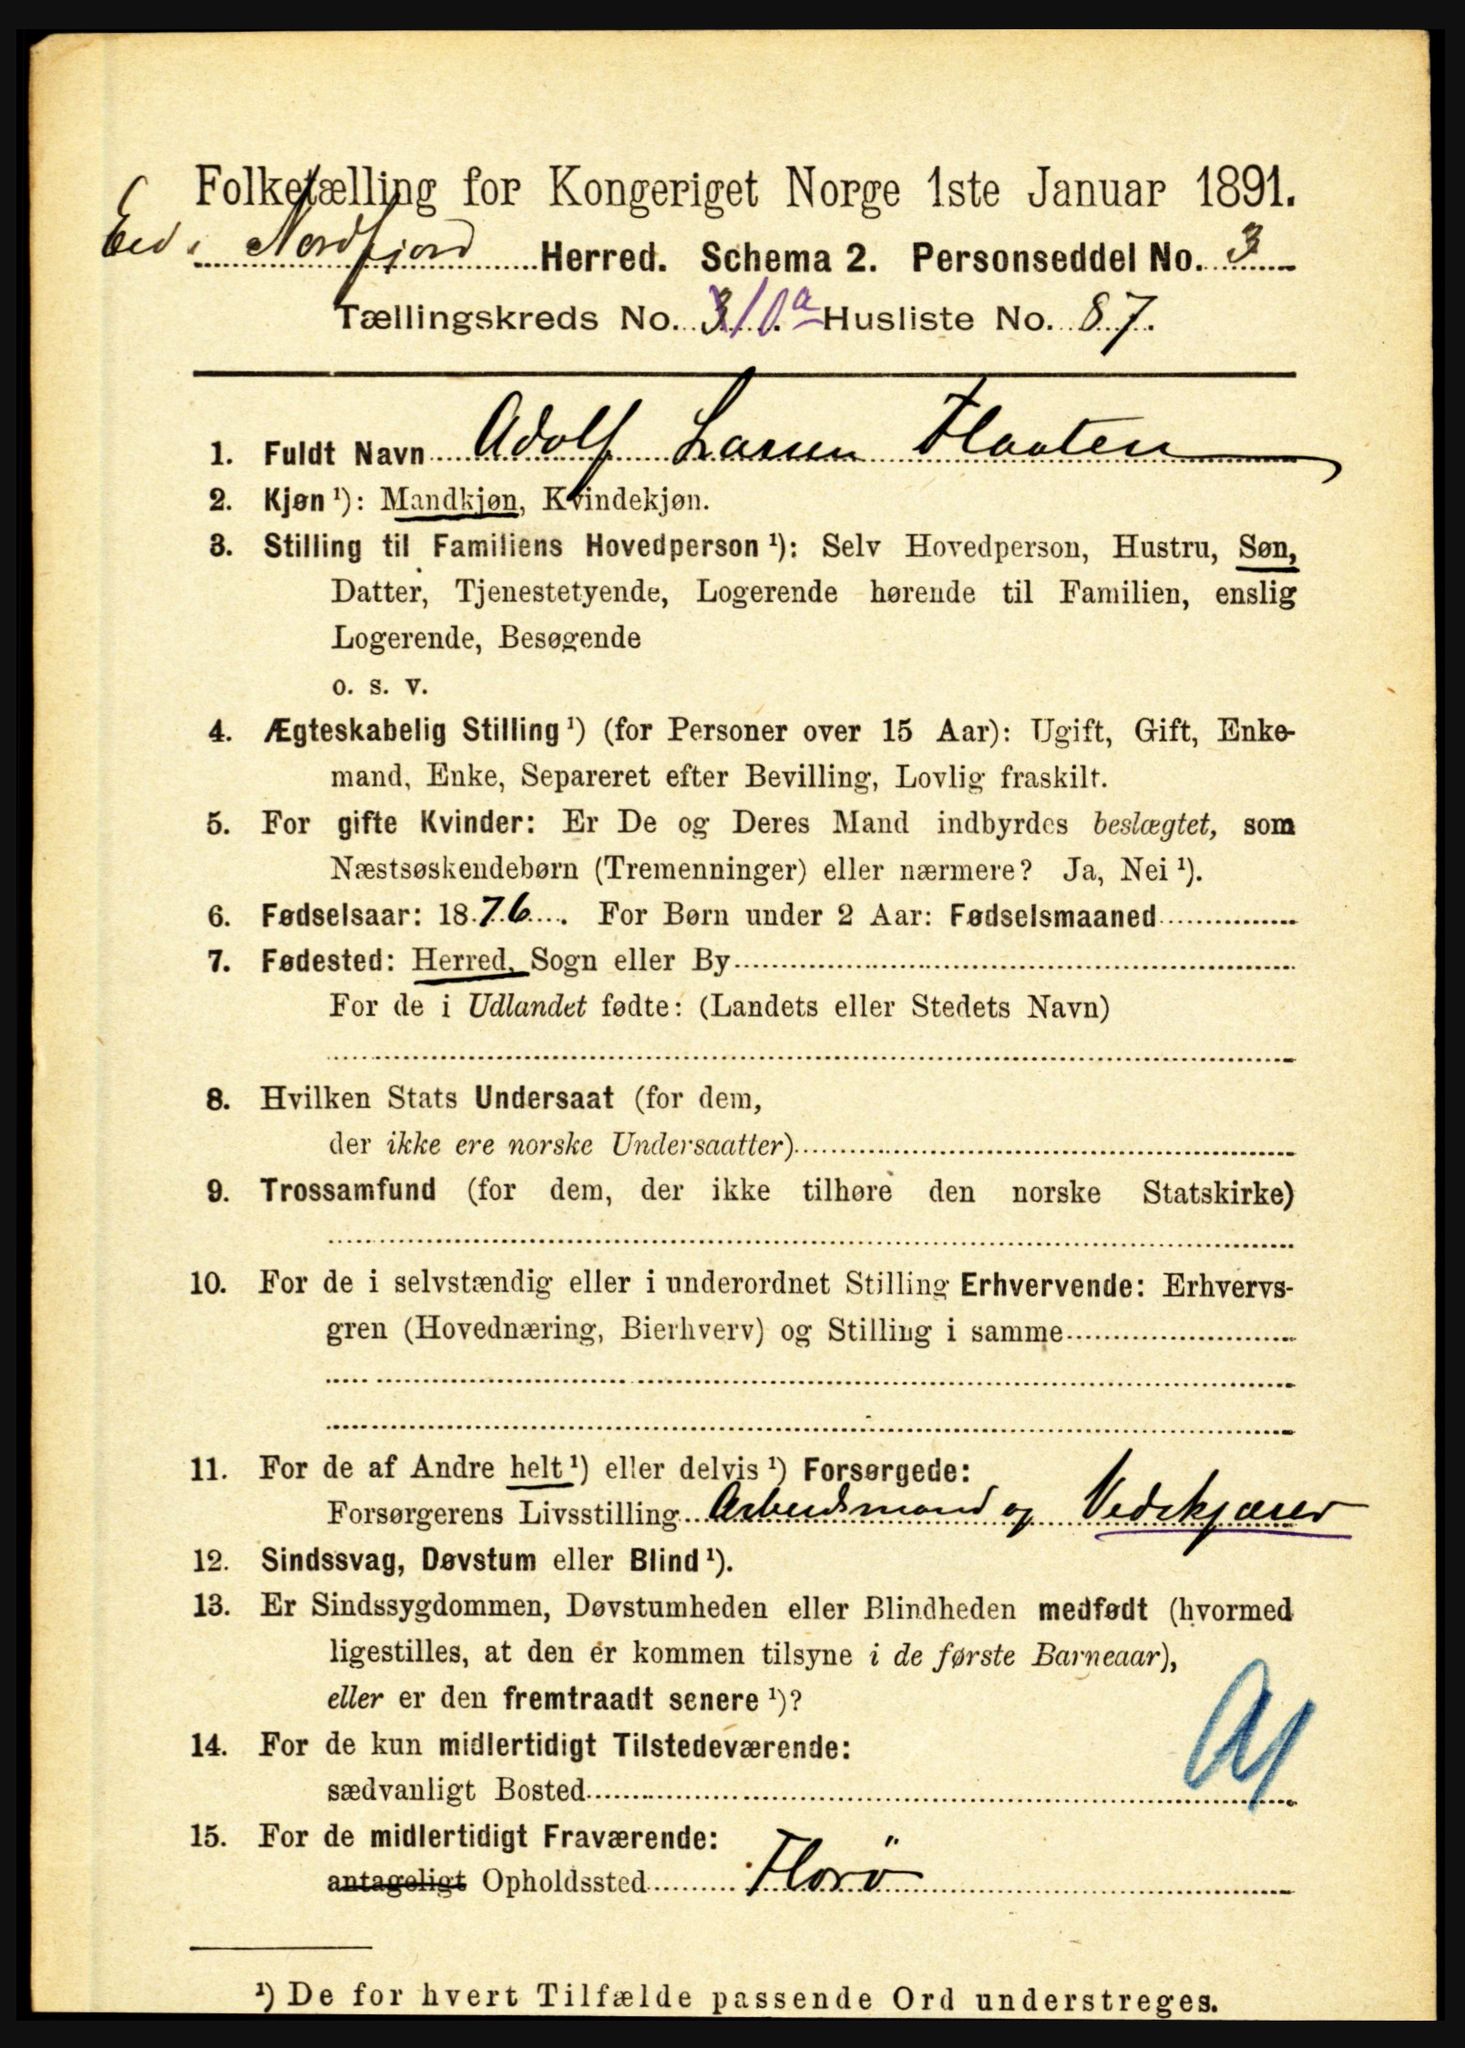 Folketælling for Kongeriget Norge 1ste Januar 1891.
Eid i Nordfjord Herred. Schema 2. Personseddel No. 3
Tællingskreds No. 3 10a Husliste No. 87.
1. Fuldt Navn Adolf Larsen Flaaten
2. Kjøn ¹): Mandkjøn, Kvindekjøn.
3. Stilling til Familiens Hovedperson ¹): Selv Hovedperson, Hustru, Søn,
Datter, Tjenestetyende, Logerende hørende til Familien, enslig
Logerende, Besøgende
o. s. v.
4. Ægteskabelig Stilling ¹) (for Personer over 15 Aar): Ugift, Gift, Enke-
mand, Enke, Separeret efter Bevilling, Lovlig fraskilt.
5. For gifte Kvinder: Er De og Deres Mand indbyrdes beslægtet, som
Næstsøskendebørn (Tremenninger) eller nærmere? Ja, Nei ¹).
6. Fødselsaar: 1876. For Børn under 2 Aar: Fødselsmaaned
7. Fødested: Herred, Sogn eller By
For de i Udlandet fødte: (Landets eller Stedets Navn)
8. Hvilken Stats Undersaat (for dem,
der ikke ere norske Undersaatter)
9. Trossamfund (for dem, der ikke tilhøre den norske Statskirke)
10. For de i selvstændig eller i underordnet Stilling Erhvervende: Erhvervs-
gren (Hovednæring, Bierhverv) og Stilling i samme
11. For de af Andre helt ¹) eller delvis ¹) Forsørgede:
Forsørgerens Livsstilling Arbeidsmand og Vedskjærer
12. Sindssvag, Døvstum eller Blind ¹).
13. Er Sindssygdommen, Døvstumheden eller Blindheden medfødt (hvormed
ligestilles, at den er kommen tilsyne i de første Barneaar),
eller er den fremtraadt senere ¹)?
14. For de kun midlertidigt Tilstedeværende:
sædvanligt Bosted
15. For de midlertidigt Fraværende:
antageligt Opholdssted Florö
¹) De for hvert Tilfælde passende Ord understreges.